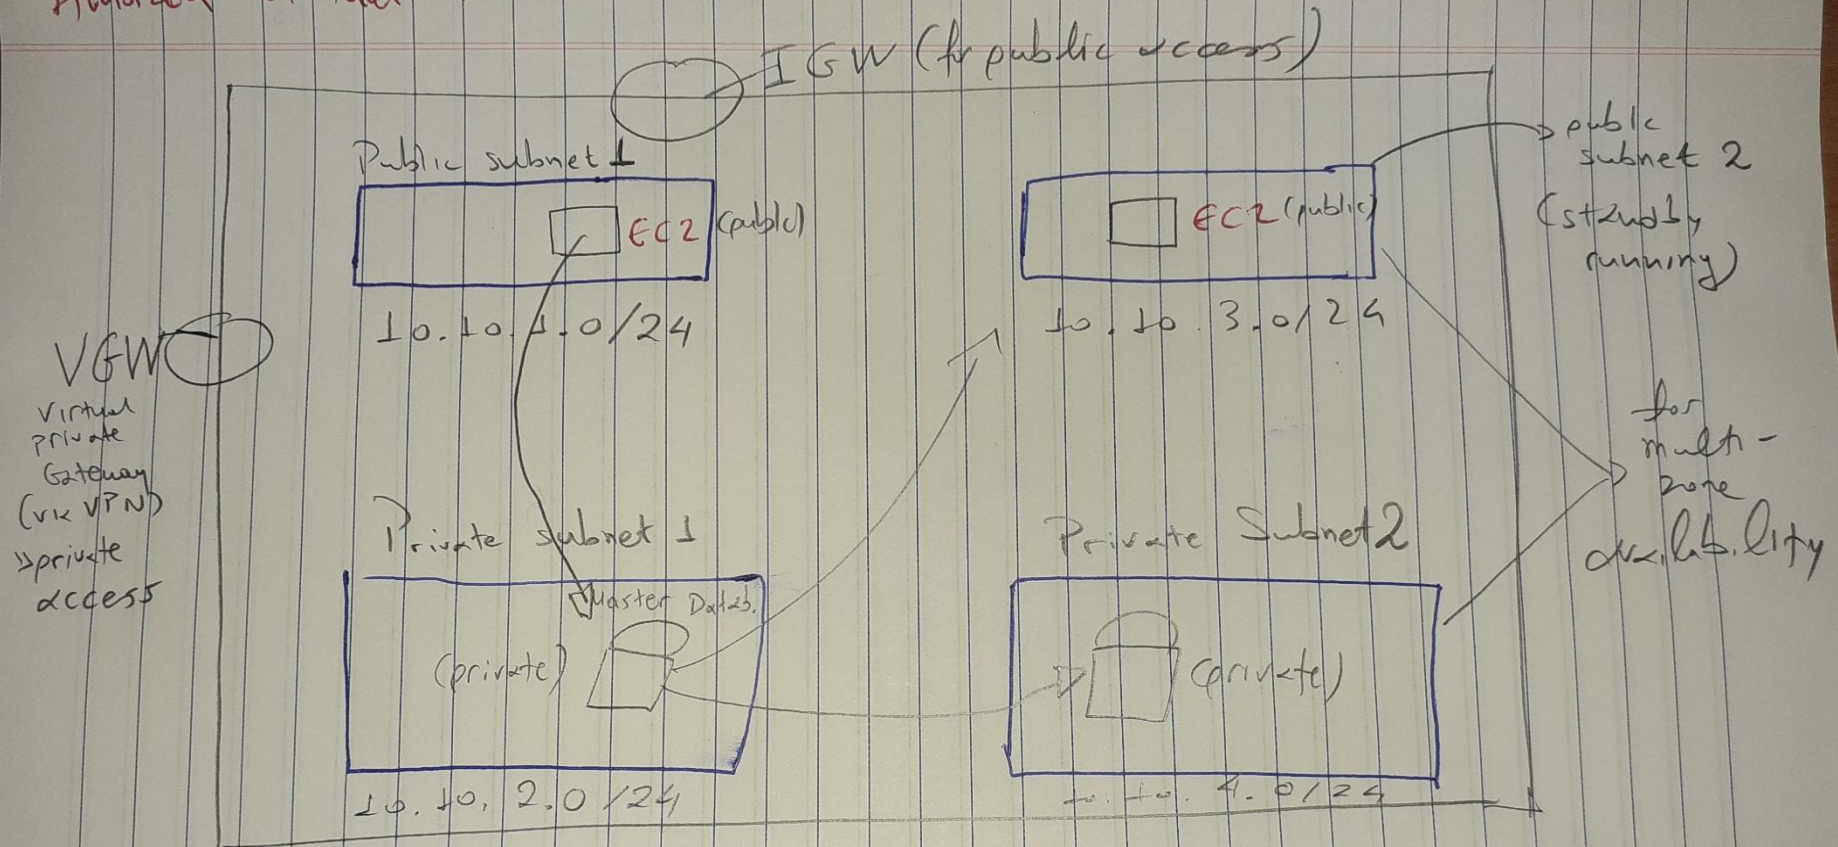 IGW (for public access)
Public subnet 1
EC2 (public)
10.10.1.0/24
EC2 (public)
10.10.3.0/24
public
subnet 2
(standby
running)
VGW
Virtual
private
Gateway
(via VPN)
private
access
for
multi-
zone
availability
Private subnet 1
Master Datab.
(private)
10.10.2.0/24
Private Subnet 2
(private)
10.10.4.0/24